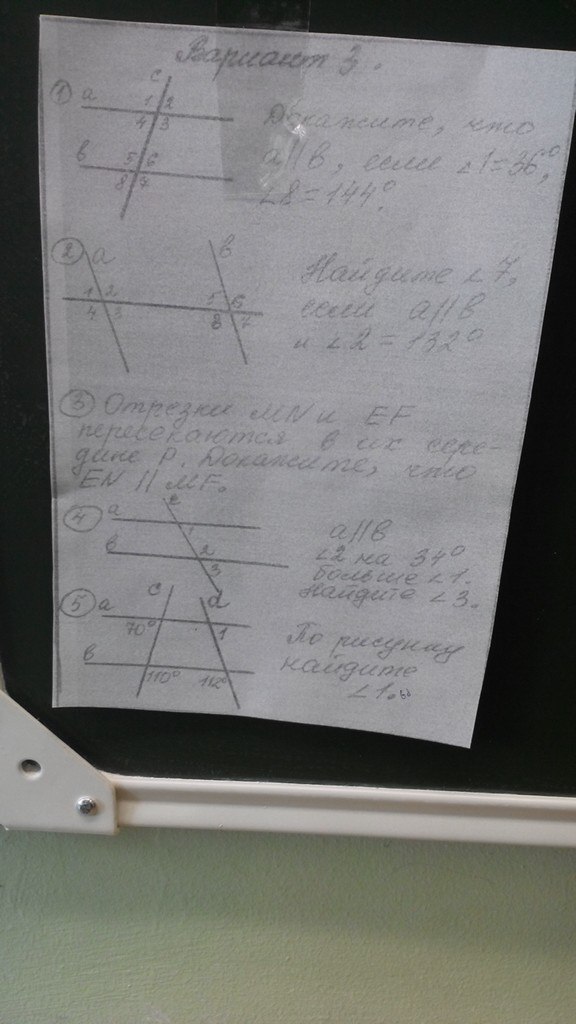 Вариант 3.
① a c 1 2 4 3 b 5 6 8 7
Докажите, что
a||b, если ∠1=36°,
∠8=144°.
② a b 1 2 4 3 5 6 8 7
Найдите ∠7,
если a||b
и ∠2=132°
③ Отрезки MN и EF
пересекаются в их сере-
дине P. Докажите, что
EN || MF.
④ a c b 1 2 3
a||b
∠2 на 34°
больше ∠1.
Найдите ∠3.
⑤ a c d b 70° 1 110° 112°
По рисунку
найдите
∠1.